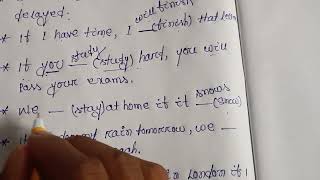 delayed.
will finish
* If I have time, I — (finish) that
study
* If you — (study) hard, you will
pass your exams.
snows
* We — (stay) at home if it — (snow)
rain tomorrow, we —
in London if I